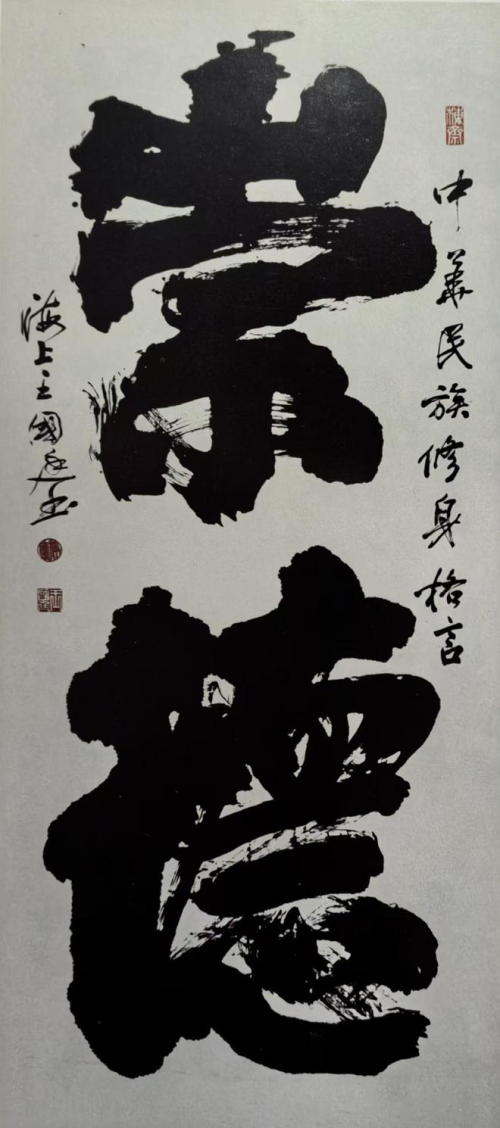 中華民族修身格言
崇德
海上王國书